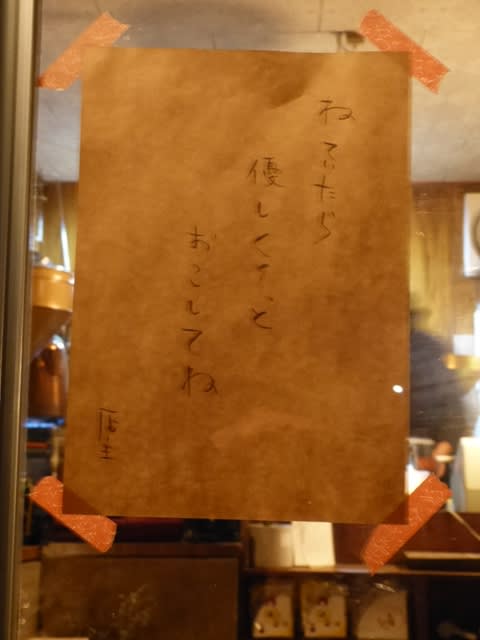 ねていたら
優しくそっと
おこしてね
店主